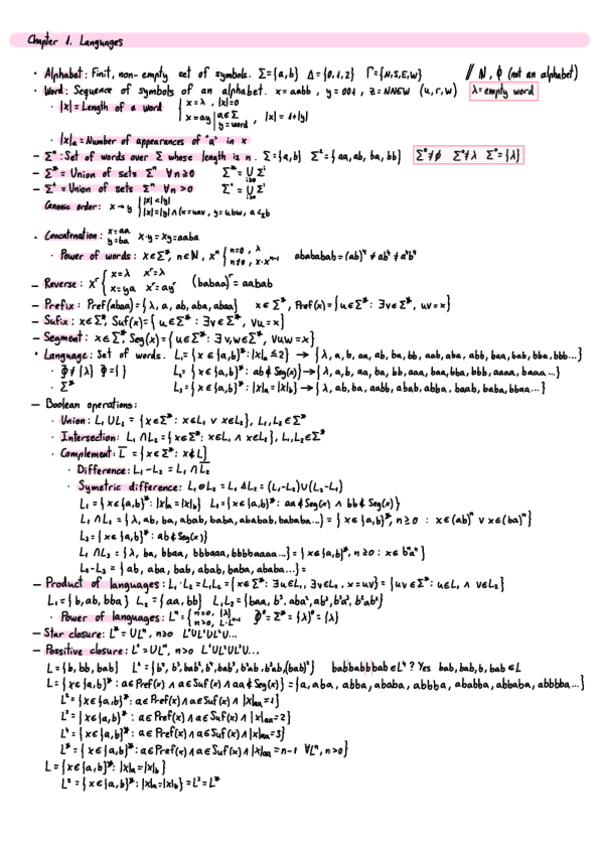 Chapter 1. Languages
· Alphabet: Finit, non-empty set of symbols. Σ={a,b} Δ={0,1,2} Γ={N,S,E,W} // ℕ, ∅ (not an alphabet)
· Word: Sequence of symbols of an alphabet. x=aabb, y=001, z=NNEW (u,r,w) λ=empty word
· |x|=Length of a word { x=λ, |x|=0
x=ay | a∈Σ y=word, |x|=1+|y|
· |x|a=Number of appearances of "a" in x
– Σⁿ: Set of words over Σ whose length is n. Σ={a,b} Σ²={aa,ab,ba,bb} Σ⁰≠∅ Σ⁰≠λ Σ⁰={λ}
– Σ* = Union of sets Σⁿ ∀n≥0 Σ*=∪ Σⁱ i≥0
– Σ⁺ = Union of sets Σⁿ ∀n>0 Σ⁺=∪ Σⁱ
Canonic order: x→y { |x|<|y|
|x|=|y| ∧ (x=uav, y=ubw, a<Σb
· Concatenation: x=aa y=ba x·y=xy=aaba
· Power of words: x∈Σ*, n∈ℕ, xⁿ { n=0, λ
n≠0, x·xⁿ⁻¹ abababab=(ab)⁴≠ab⁴≠a⁴b⁴
– Reverse: xʳ { x=λ xʳ=λ
x=ya xʳ=ayʳ (babaa)ʳ=aabab
– Prefix: Pref(abaa)={λ, a, ab, aba, abaa} x∈Σ*, Pref(x)={u∈Σ*: ∃v∈Σ*, uv=x}
– Sufix: x∈Σ*, Suf(x)={u∈Σ*: ∃v∈Σ*, vu=x}
– Segment: x∈Σ*, Seg(x)={u∈Σ*: ∃v,w∈Σ*, vuw=x}
· Language: Set of words. L₁={x∈{a,b}*: |x|a≤2} → {λ, a, b, aa, ab, ba, bb, aab, aba, abb, baa, bab, bba, bbb...}
· ∅≠{λ} ∅={ } L₂={x∈{a,b}*: ab∉Seg(x)} → {λ, a, b, aa, ba, bb, aaa, baa, bba, bbb, aaaa, baaa...}
· Σ* L₃={x∈{a,b}*: |x|a=|x|b} → {λ, ab, ba, aabb, abab, abba, baab, baba, bbaa...}
– Boolean operations:
· Union: L₁∪L₂={x∈Σ*: x∈L₁ ∨ x∈L₂}, L₁,L₂∈Σ*
· Intersection: L₁∩L₂={x∈Σ*: x∈L₁ ∧ x∈L₂}, L₁,L₂∈Σ*
· Complement: L̅={x∈Σ*: x∉L}
· Difference: L₁-L₂=L₁∩L̅₂
· Symetric difference: L₁⊖L₂=L₁ΔL₂=(L₁-L₂)∪(L₂-L₁)
L₁={x∈{a,b}*: |x|a=|x|b} L₂={x∈{a,b}*: aa∉Seg(x) ∧ bb∉Seg(x)}
L₁∩L₂={λ, ab, ba, abab, baba, ababab, bababa...}={x∈{a,b}*, n≥0 : x∈(ab)ⁿ ∨ x∈(ba)ⁿ}
L₃={x∈{a,b}*: ab∉Seg(x)}
L₁∩L₃={λ, ba, bbaa, bbbaaa, bbbbaaaa...}={x∈{a,b}*, n≥0: x∈bⁿaⁿ}
L₂-L₃={ab, aba, bab, abab, baba, ababa...}=
– Product of languages: L₁·L₂=L₁L₂={x∈Σ*: ∃u∈L₁, ∃v∈L₂, x=uv}={uv∈Σ*: u∈L₁ ∧ v∈L₂}
L₁={b,ab,bba} L₂={aa,bb} L₁L₂={baa, b³, aba², ab³, b²a³, b²ab²}
· Power of languages: Lⁿ={ n=0, {λ}
n>0, L·Lⁿ⁻¹ ∅⁰=Σ⁰={λ}⁰={λ}
– Star closure: L*=∪Lⁿ, n≥0 L⁰∪L¹∪L²∪...
– Possitive closure: L⁺=∪Lⁿ, n>0 L¹∪L²∪L³∪...
L={b, bb, bab} L²={b², b³, bab², b⁴, bab³, b²ab, b³ab, (bab)²} babbabbbab∈L⁴? Yes bab, bab, b, bab∈L
L={x∈{a,b}*: a∈Pref(x) ∧ a∈Suf(x) ∧ aa∉Seg(x)}={a, aba, abba, ababa, abbba, ababba, abbaba, abbbba...}
L²={x∈{a,b}*: a∈Pref(x) ∧ a∈Suf(x) ∧ |x|aa=1}
L³={x∈{a,b}*: a∈Pref(x) ∧ a∈Suf(x) ∧ |x|aa=2}
L⁴={x∈{a,b}*: a∈Pref(x) ∧ a∈Suf(x) ∧ |x|aa=3}
L*={x∈{a,b}*: a∈Pref(x) ∧ a∈Suf(x) ∧ |x|aa=n-1 ∀Lⁿ, n>0}
L={x∈{a,b}*: |x|a=|x|b}
L²={x∈{a,b}*: |x|a=|x|b}=L³=L*